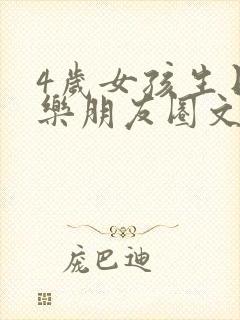 4歲女孩生日
樂朋友圈文
庞巴迪